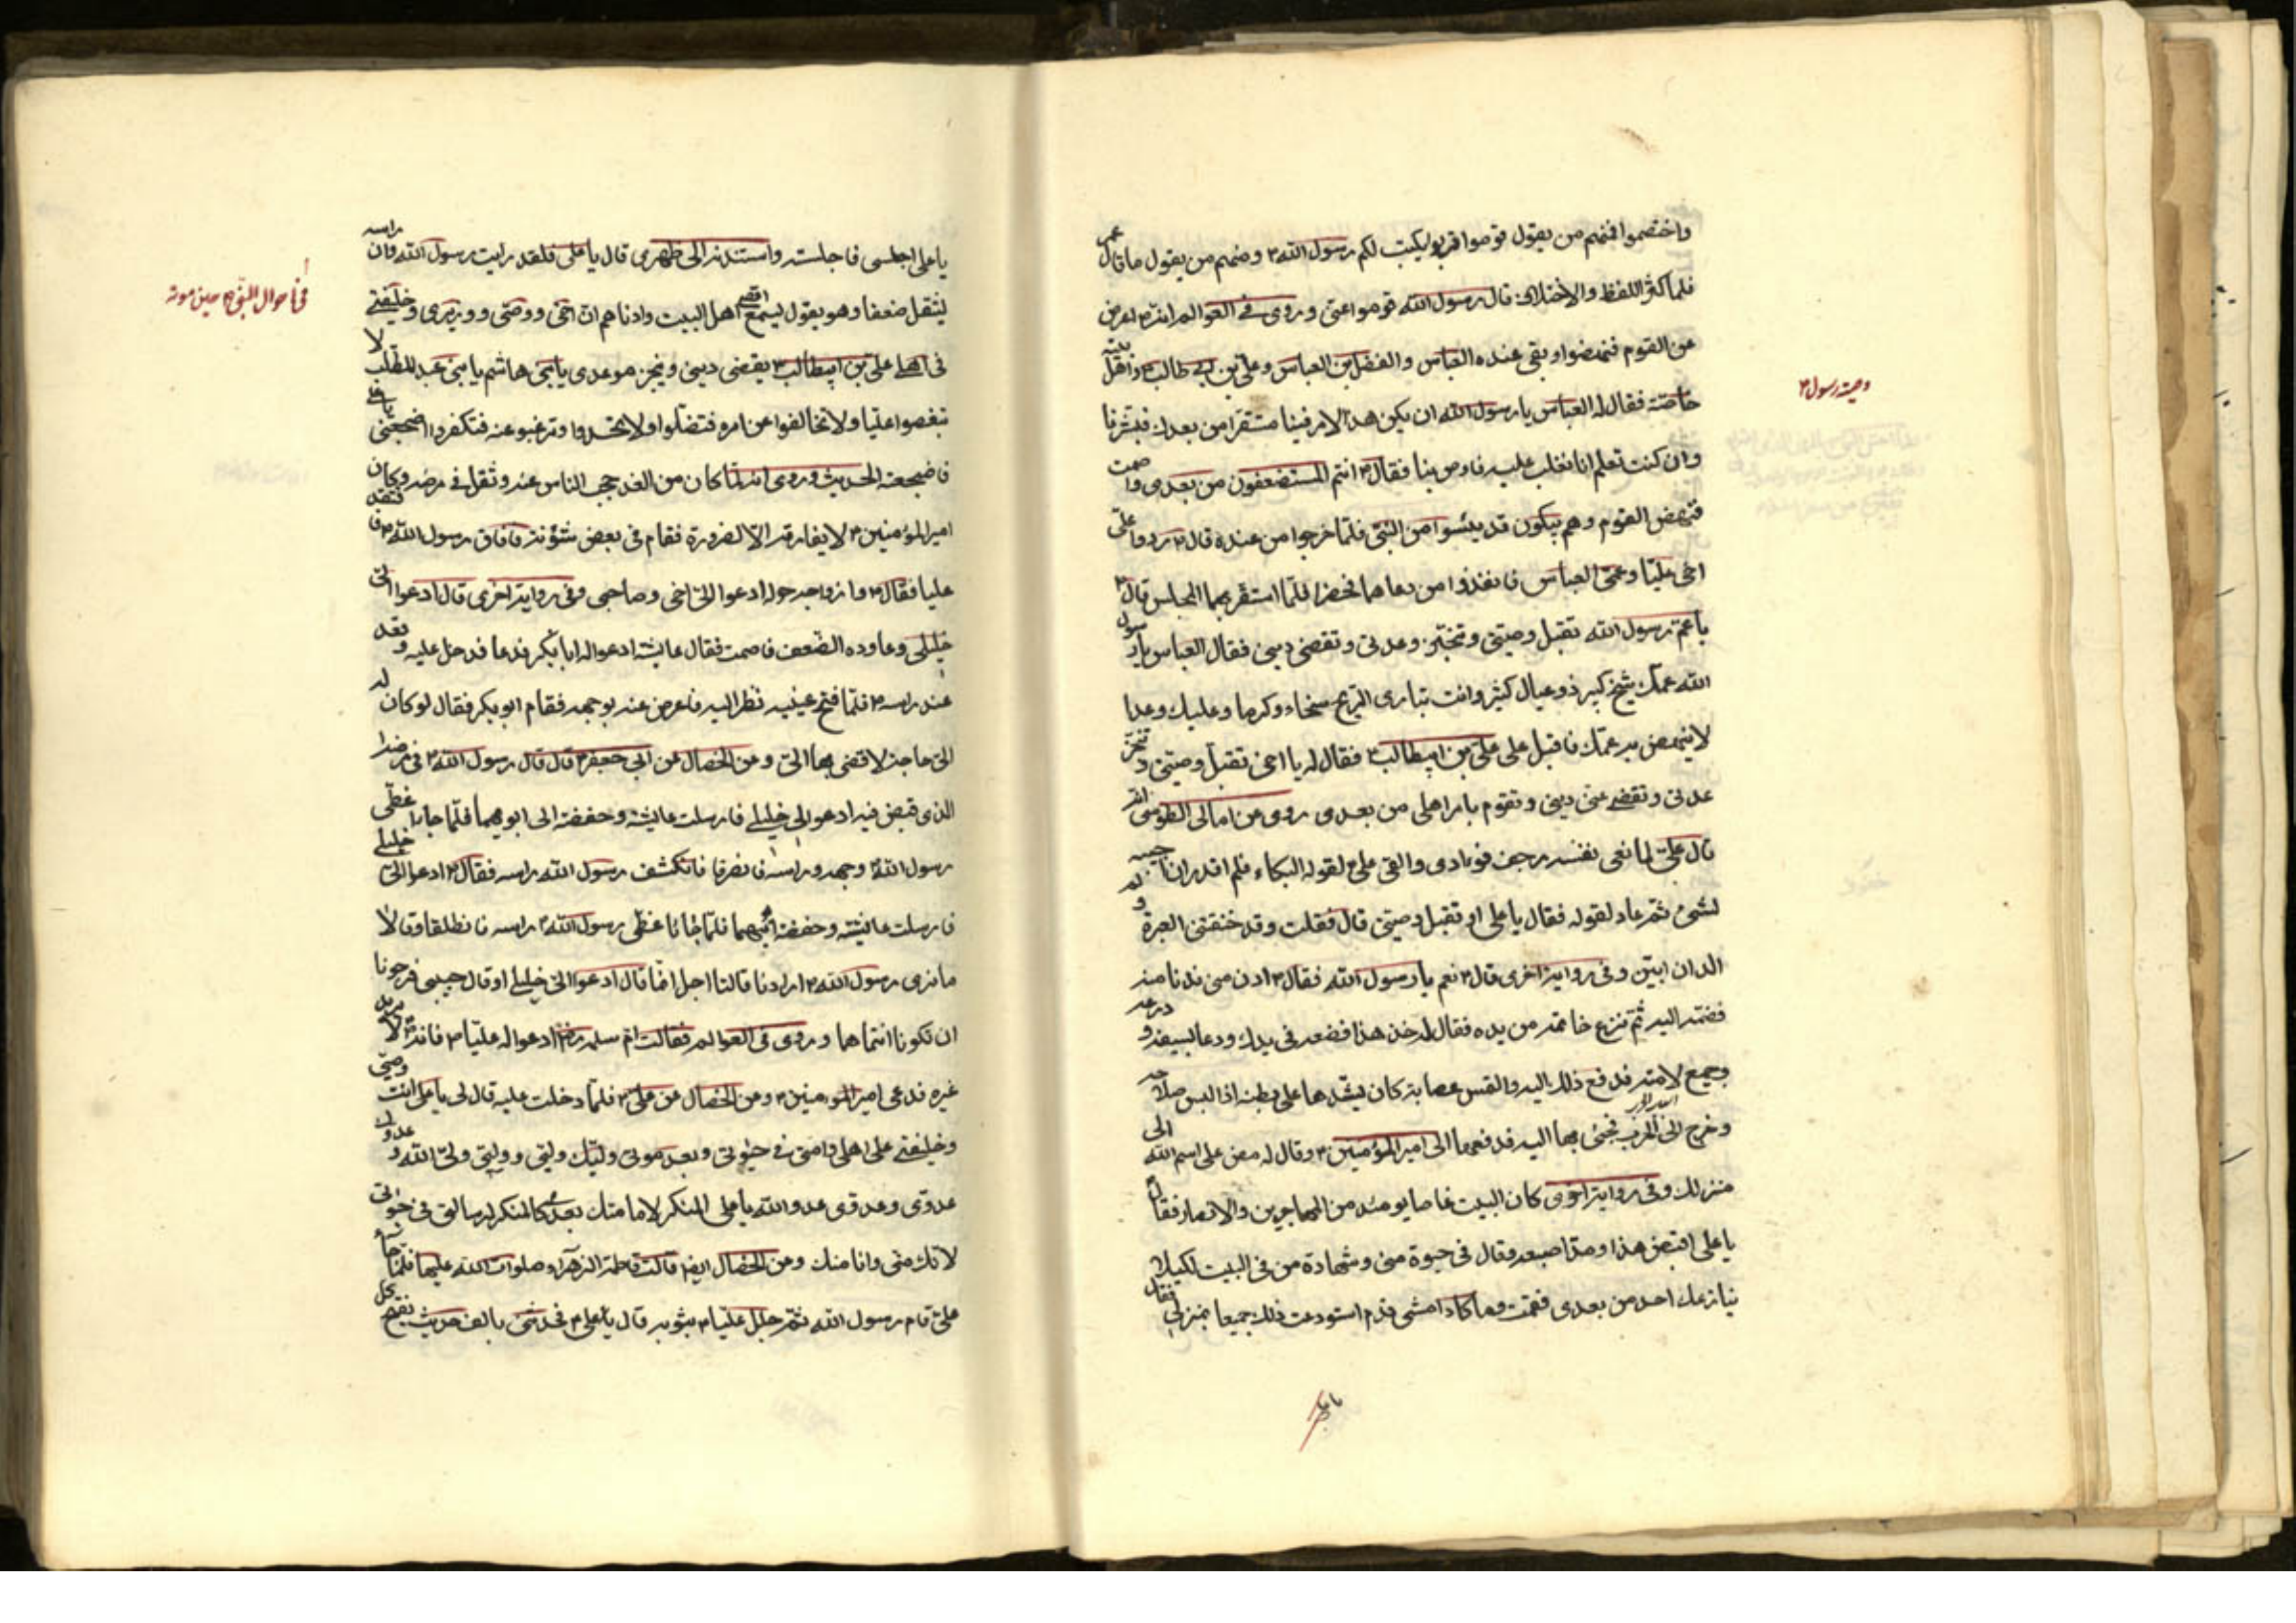 واختصموا فمنهم من يقول قوموا قربوا يكتب لكم رسول الله ٢ ومنهم من يقول ما قال عمر
فلما كثر اللغط والاختلاف قال رسول الله قوموا عني وروى في العوالم انه ٢ اعرض
عن القوم فنهضوا وبقى عنده العباس والفضل بن العباس وعلي بن ابي طالب ٢ واهل بيته
خاصته فقال له العباس يا رسول الله ان يكن هذا الامر فينا مستقرا من بعدك فبشرنا
وان كنت تعلم انا نغلب عليه فاوص بنا فقال ٢ انتم المستضعفون من بعدى واصمت
فنهض القوم وهم يبكون قد يئسوا من النبي فلما خرجوا من عنده قال ٢ ردوا علي
اخى عليا وعمى العباس فانفذوا من دعاهما فحضرا فلما استقر بهما المجلس قال ٢
يا عم رسول الله تقبل وصيتى وتنجز وعدتى وتقضى دينى فقال العباس يا رسول
الله عمك شيخ كبير ذو عيال كثير وانت تبارى الريح سخاء وكرما وعليك وعدا
لا ينهض به عمك فاقبل على علي بن ابيطالب ٢ فقال له يا اخى تقبل وصيتى وتنجز
عدتى وتقضى عنى دينى وتقوم بامر اهلى من بعدى روى عن امالى الطوسى انه
قال علي لما نعى نفسه رجف فوادى والقى علي لقوله البكاء فلم اقدر ان اجيبه
لشئ ثم عاد لقوله فقال يا على او تقبل وصيتى قال فقلت وقد خنقتنى العبرة ولم
اكد ان ابين وفى رواية اخرى قال ٢ نعم يا رسول الله فقال ٢ ادن منى فدنا منه
فضمه اليه ثم نزع خاتمه من يده فقال له خذ هذا فضعه فى يدك ودعا بسيفه ودرعه
وجميع لامته فدفع ذلك اليه والتمس عصابة كان يشدها على بطنه اذا لبس سلاحه
وخرج الى الحرب فجئ بها اليه فدفعها الى امير المؤمنين ٢ وقال له مض على اسم الله الى
منزلك وفى رواية اخرى كان البيت غاصا يومئذ من المهاجرين والانصار فقال
يا على اقبض هذا ومد اصبعه وقال فى حيوة منى وشهادة من فى البيت لكيلا
ينازعك احد من بعدى فقمت وما اكاد امشى قدم استودعت ذلك جميعا بمنزلى فقال
يا على
وصية رسول ٢
يا على اجلسى فاجلسته واستندته الى ظهرى قال يا على فلقد رايت رسول الله وان راسه
ليثقل ضعفا وهو يقول ليسمع اقصى اهل البيت وادناهم ان اخى ووصى ووزيرى وخليفتى
فى اهلى على بن ابيطالب ٢ يقضى دينى وينجز موعدى يا بنى هاشم يا بنى عبد المطلب لا
تبغضوا عليا ولا تخالفوا عن امره فتضلوا ولا تحسدوا وترغبوا عنه فتكفروا اضجعنى يا على
فاضجعته الحديث وروى انه لما كان من الغد حجب الناس عنه وثقل فى مرضه وكان
امير المؤمنين ٢ لا يفارقه الا لضرورة فقام فى بعض شؤنه فافاق رسول الله ٢ فافتقد
عليا فقال ٢ وازواجه حوله ادعوا الى اخى وصاحبى وفى رواية اخرى قال ادعوا الى
خليلى وعاوده الضعف فاصمت فقال عايشة ادعوا له ابا بكر فدعا فدخل عليه وقعد
عند راسه ٢ فلما فتح عينيه نظر اليه فاعرض عنه بوجهه فقام ابو بكر فقال لو كان له
الى حاجة لافضى بها الى وعن الخصال عن ابى جعفر ٢ قال قال رسول الله ٢ فى مرضه
الذى قبض فيه ادعوا لى خليلى فارسلت عايشة وحفصة الى ابويهما فلما جاءا غطى
رسول الله وجهه وراسه فانصرفا فانكشف رسول الله راسه فقال ٢ ادعوا الى خليلى
فارسلت عايشة وحفصة ابيهما فلما جاءا غطى رسول الله راسه فانطلقا وقالا
ما نرى رسول الله ٢ ارادنا قالتا اجل انما قال ادعوا الى خليلى او قال حبيبى فرجونا
ان تكونا انتما هما وروى فى العوالم فقالت ام سلمه رض ادعوا له عليا ٢ فانه لا يريد
غيره فدعى امير المؤمنين ٢ وعن الخصال عن علي ٢ فلما دخلت عليه قال لى يا على انت وصيى
وخليفتى على اهلى وامتى فى حيوتى وبعد موتى وليك وليى ووليى ولى الله وعدوك
عدوى وعدوى عدو الله يا على المنكر لامامتك بعدى كالمنكر لرسالتى فى حيواتى
لانك منى وانا منك وعن الخصال ايضا قالت فاطمة الزهراء صلوات الله عليها فلما جاء
على قام رسول الله ثم جلل عليا ٢ بثوبه قال يا على ٢ فحدثنى بالف حديث يفتح كل
فى احوال النبى ٢ حين موته